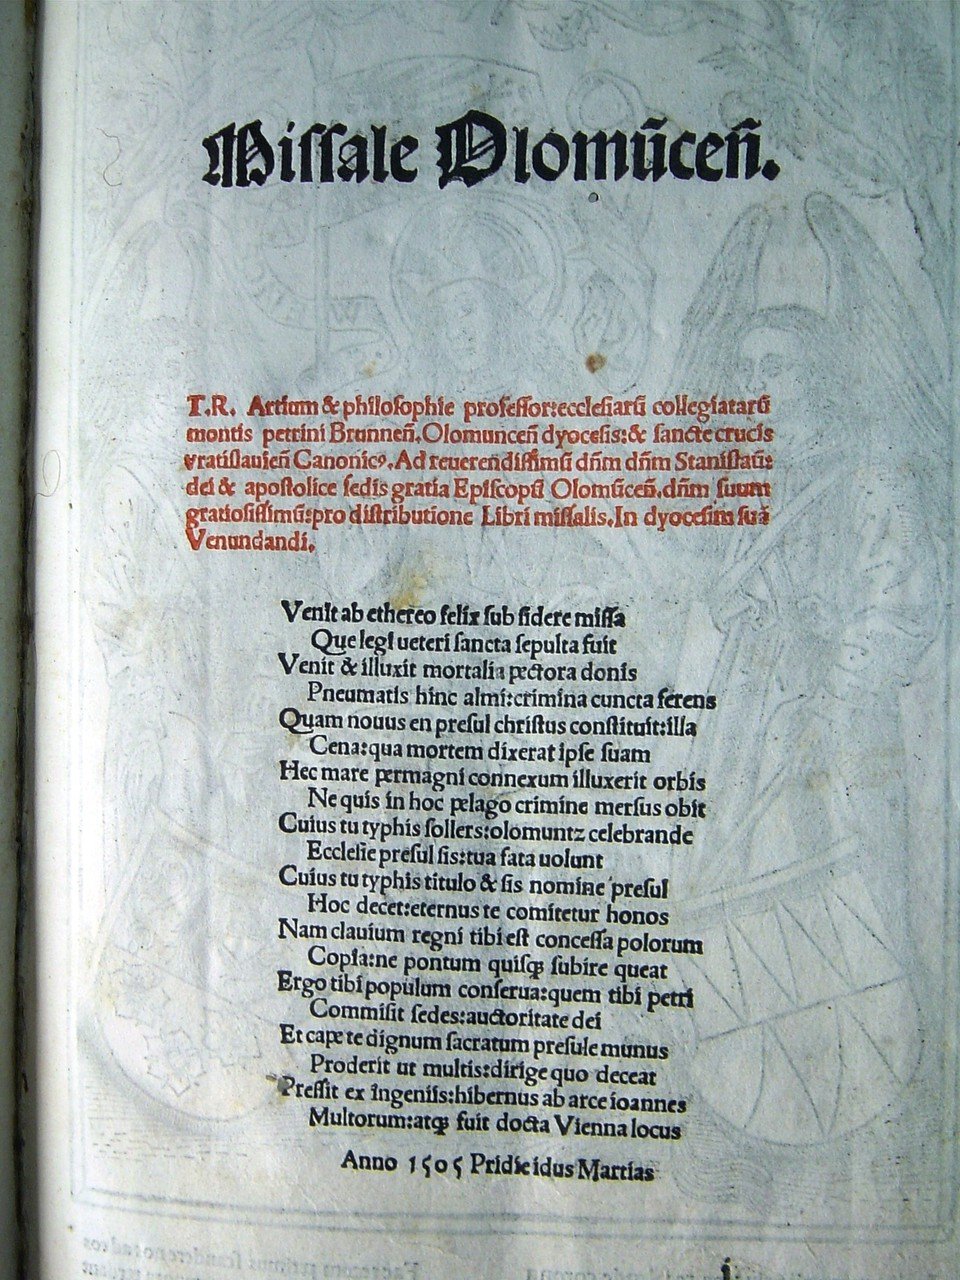 Miſſale Olomūceñ.
T.R. Artium & philoſophie profeſſor:eccleſiarū collegiatarū
montis petrini Brunneñ.Olomunceñ dyoceſis:& ſancte crucis
vratiſlauieñ Canonicꝰ.Ad reuerendiſſimū dñm dñm Staniſlaū:
dei & apoſtolice ſedis gratia Epiſcopū Olomūceñ.dñm ſuum
gratioſiſſimū:pro diſtributione Libri miſſalis.In dyoceſim ſuā
Venundandi.
Venit ab ethereo felix ſub ſidere miſſa
Que legi ueteri ſancta ſepulta fuit
Venit & illuxit mortalia pectora donis
Pneumatis hinc almi:crimina cuncta ferens
Quam nouus en preſul chriſtus conſtituit:illa
Cena:qua mortem dixerat ipſe ſuam
Hec mare permagni connexum illuxerit orbis
Ne quis in hoc pelago crimine merſus obit
Cuius tu typhis ſollers:olomuntz celebrande
Eccleſie preſul ſis:tua fata uolunt
Cuius tu typhis titulo & ſis nomine preſul
Hoc decet:eternus te comitetur honos
Nam clauium regni tibi eſt conceſſa polorum
Copia:ne pontum quiſqꝫ ſubire queat
Ergo tibi populum conſerua:quem tibi petri
Commiſit ſedes:auctoritate dei
Et cape te dignum ſacratum preſule munus
Proderit ut multis:dirige quo deceat
Preſſit ex ingeniis:hibernus ab arce ioannes
Multorum:atqꝫ fuit docta Vienna locus
Anno 1505 Pridie idus Martias